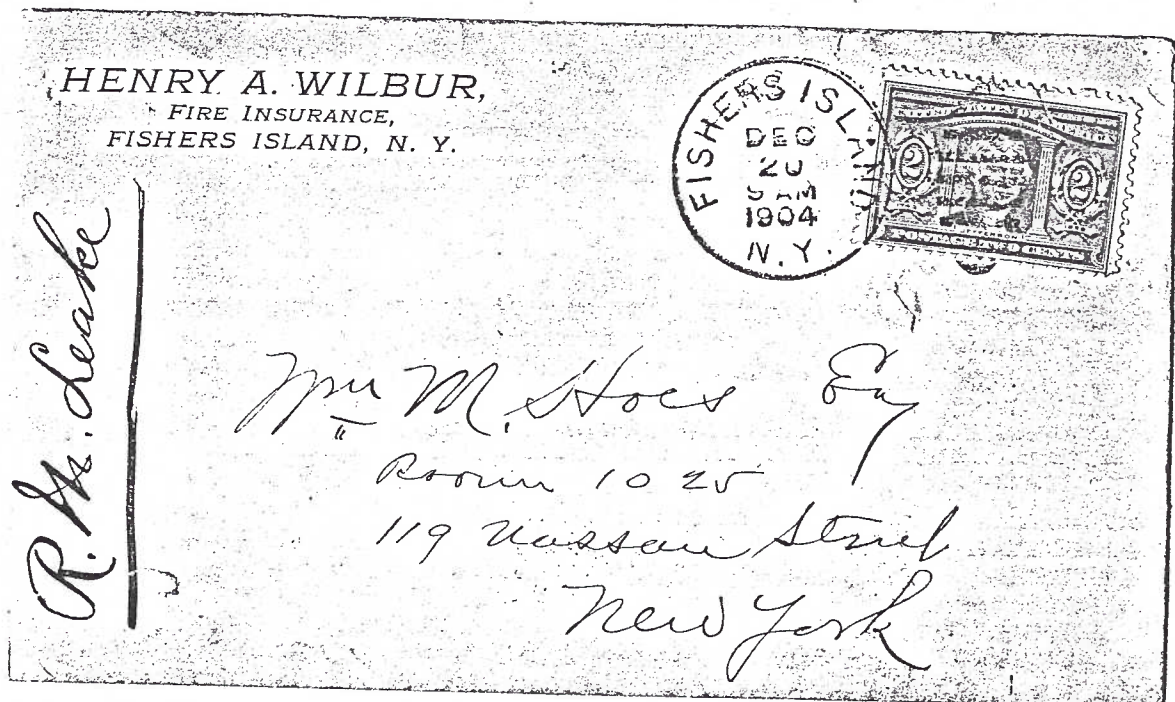 HENRY A. WILBUR,
FIRE INSURANCE,
FISHERS ISLAND, N. Y.
FISHERS ISLAND
DEC
20
9 AM
1904
N.Y.
2 2
R. M. Leake
Wm M. Hoes Esq
Room 1025
119 Nassau Street
New York